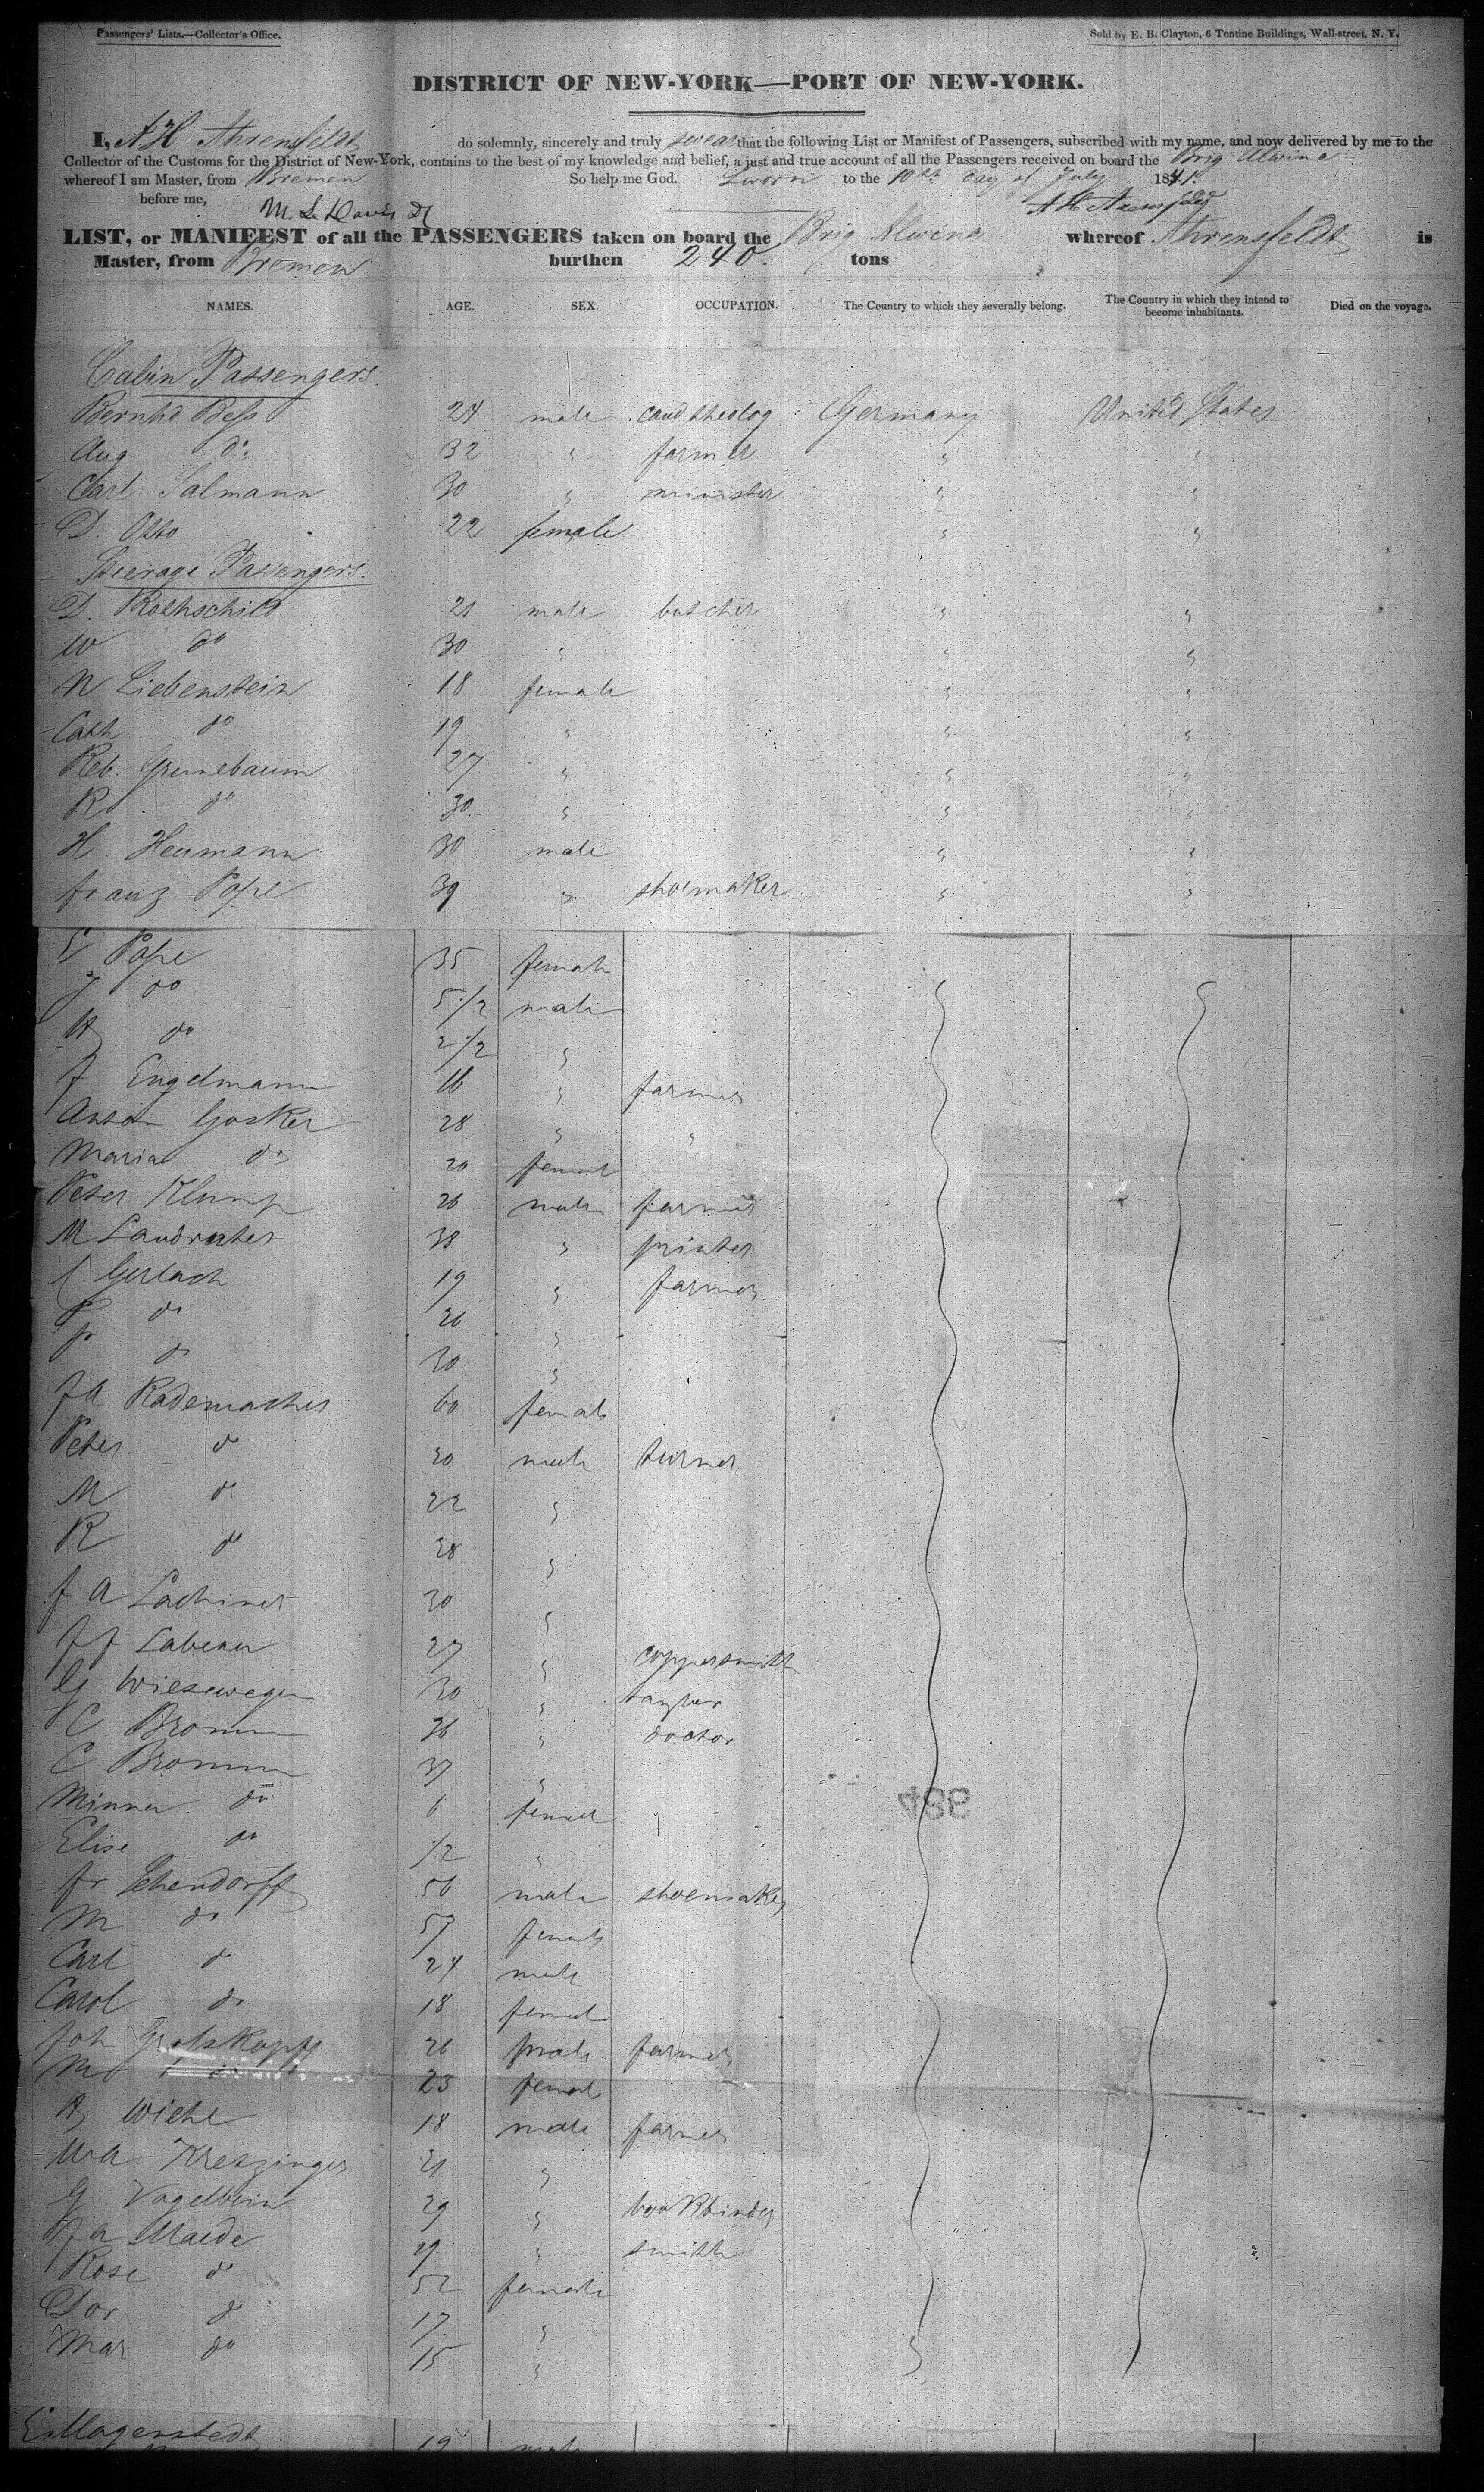 Passengers' Lists.—Collector's Office.
Sold by E. B. Clayton, 6 Tontine Buildings, Wall-street, N. Y.
DISTRICT OF NEW-YORK—PORT OF NEW-YORK.
I, A H Ahrensfeldt do solemnly, sincerely and truly swear that the following List or Manifest of Passengers, subscribed with my name, and now delivered by me to the
Collector of the Customs for the District of New-York, contains to the best of my knowledge and belief, a just and true account of all the Passengers received on board the Brig Alwina
whereof I am Master, from Bremen So help me God. Sworn to the 10th day of July 1841.
before me,
LIST, or MANIFEST of all the PASSENGERS taken on board the Brig Alwina whereof Ahrensfeldt is
Master, from Bremen burthen 240. tons
NAMES. AGE. SEX. OCCUPATION. The Country to which they severally belong. The Country in which they intend to become inhabitants. Died on the voyage.
Cabin Passengers.
Bernhd 24 male cand theolog Germany United States
Aug do 32 " farmer " "
Carl Salmann 30 " minister " "
D. Otto 22 female " "
Steerage Passengers.
D. Rothschild 21 male butcher " "
W do 30 " " "
N Liebenstein 18 female " "
Cath do 19 " " "
Reb. Grunebaum 27 " " "
R do 30 " " "
H. Heumann 30 male " "
Franz Pope 39 " shoemaker " "
E Pope 35 female
J do 5 1/2 male
A do 2 1/2 "
F Engelmann 16 " farmer
Anton Gosker 28 " "
Maria do 20 female
Peter Klump 26 male farmer
M 38 " printer
Gerlach 19 " farmer
do 26 "
do 30 "
Rademacher 60 female
Peter do 30 male turner
M do 22 "
R do 28 "
30 "
27 " coppersmith
G Wiesewegen 30 "
C Bromm 36 " doctor
C Bromm 37 "
Minna do 6 female
Elise do 1/2 "
Fr 56 male shoemaker
M do 57 female
Carl do 24 male
Carol do 18 female
Joh Grotskopff 26 male farmer
M 23 female
A Wiehe 18 male farmer
Kretzinger 21 "
G Vogelbein 29 " bookbinder
Maede 29 " smith
Rose do 52 female
Dor do 17 "
Mar do 15 "
E Magerstedt 19 male